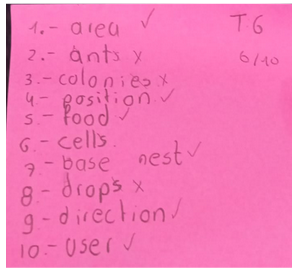 1.- area ✓ T.6
2.- ants x 6/10
3.- colonies x
4- position ✓
5.- food ✓
6.- cells.
7- base nest ✓
8- drops x
9- direction ✓
10.- user ✓